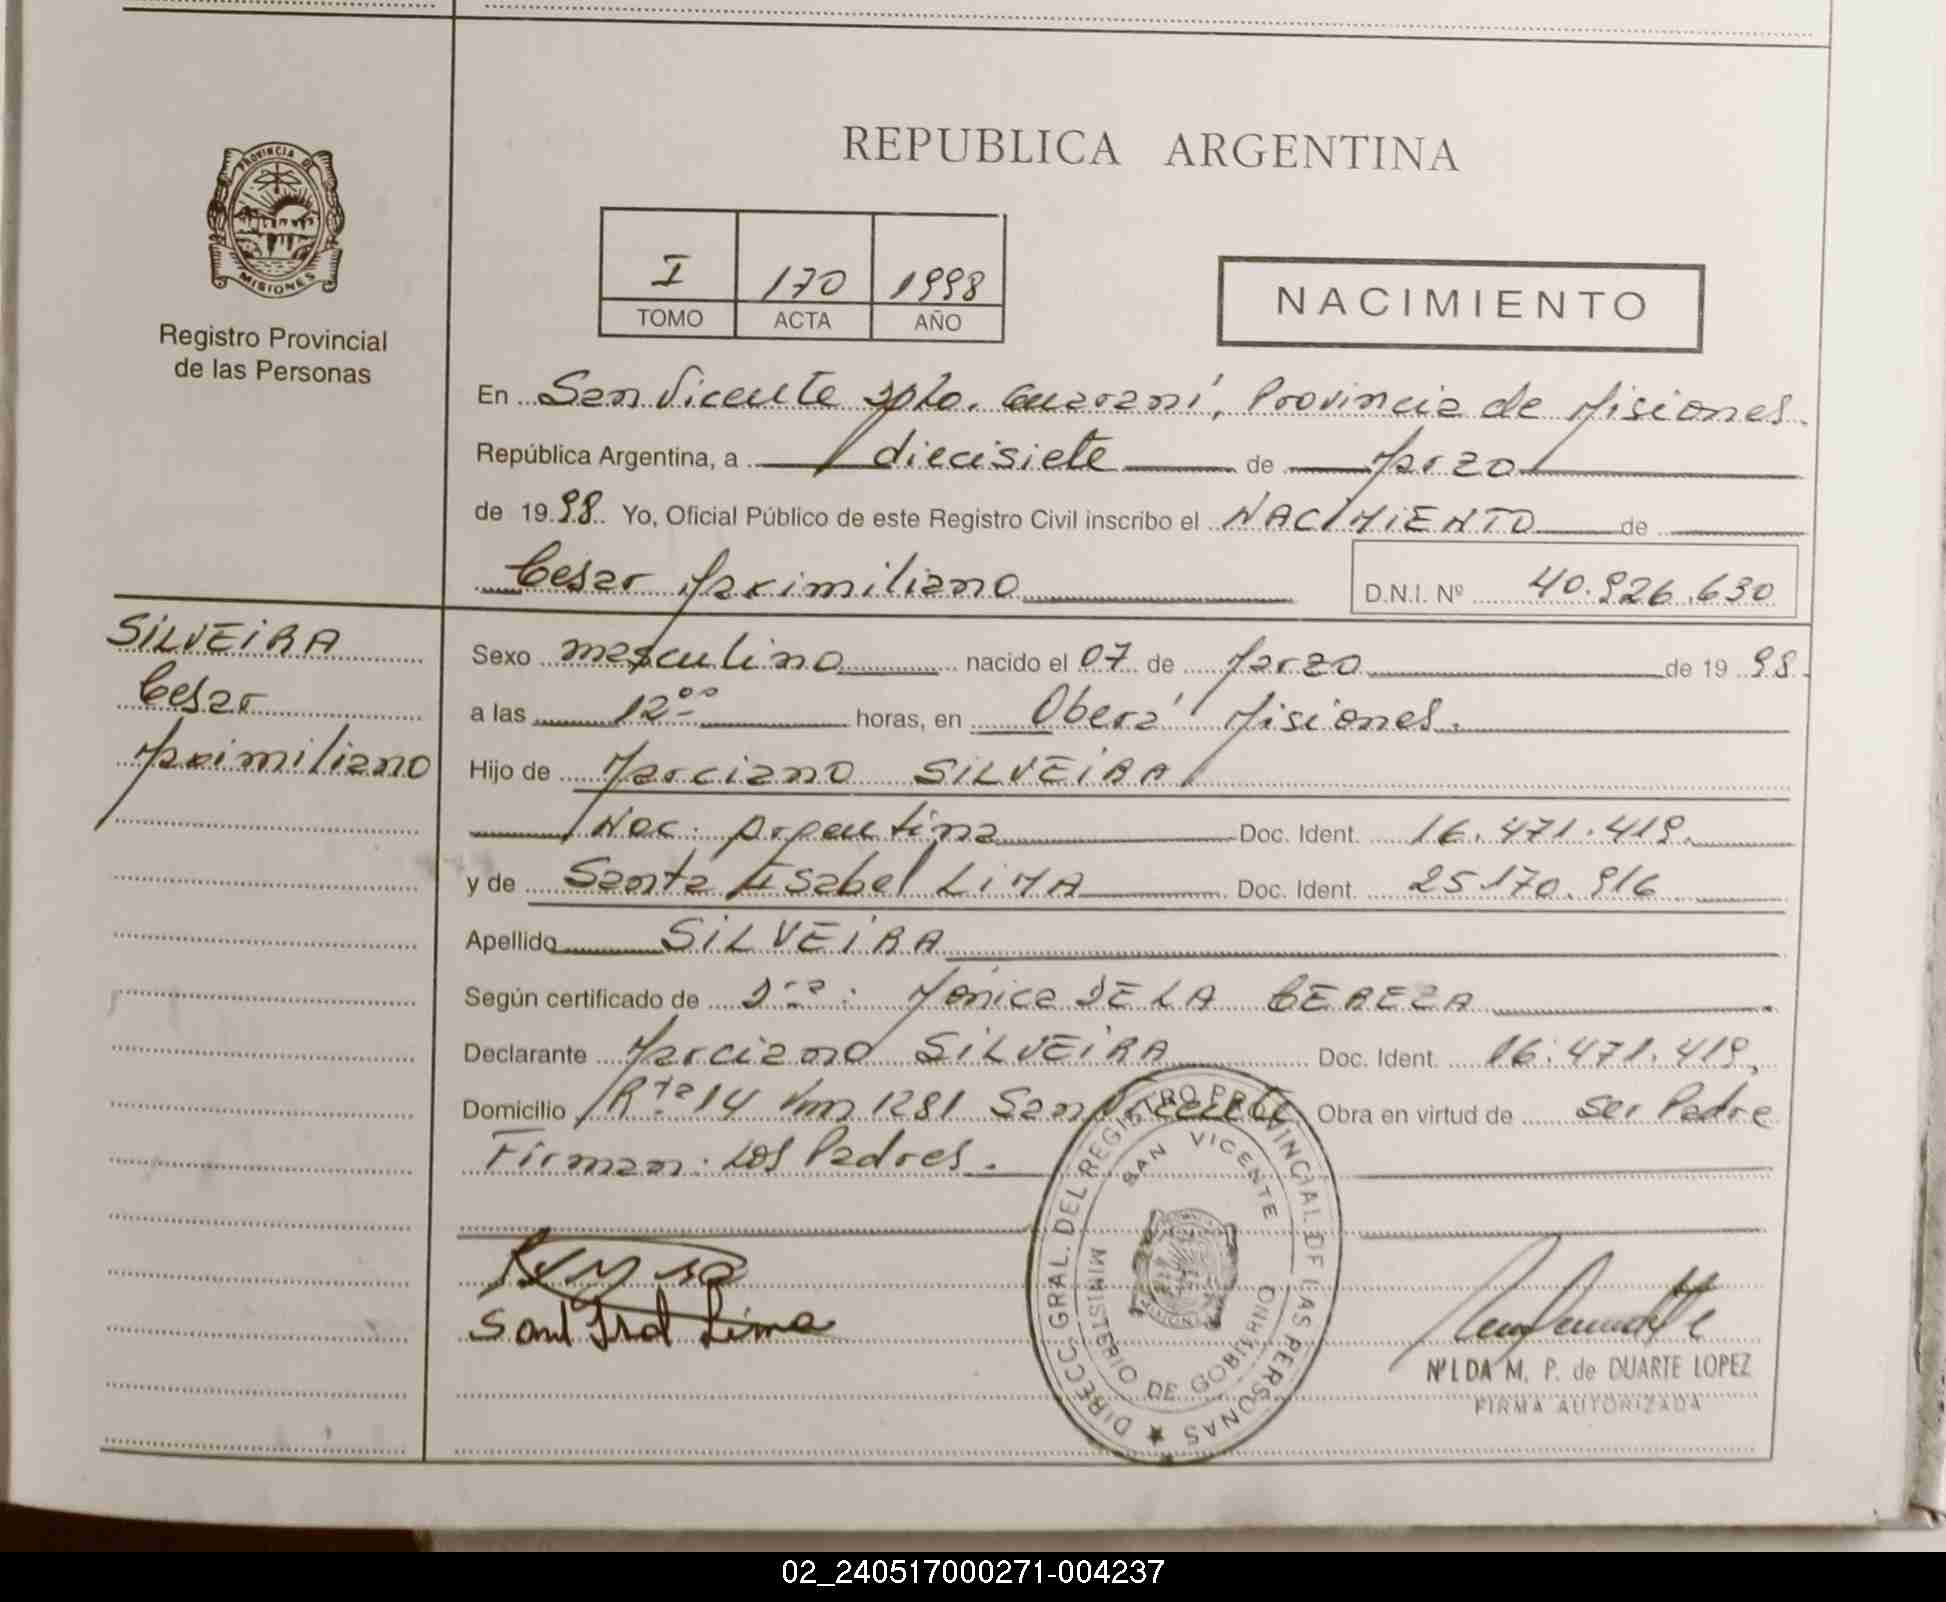 REPUBLICA ARGENTINA
PROVINCIA DE
MISIONES
Registro Provincial
de las Personas
I 170 1998
TOMO ACTA AÑO
NACIMIENTO
En San Vicente Dpto. Guaraní, Provincia de Misiones.
República Argentina, a diecisiete de Marzo
de 1998. Yo, Oficial Público de este Registro Civil inscribo el NACIMIENTO de
Cesar Maximiliano D.N.I. Nº 40.926.630
SILVEIRA
Cesar
Maximiliano
Sexo masculino nacido el 07 de Marzo de 1998.
a las 12⁰⁰ horas, en Oberá Misiones.
Hijo de Marciano SILVEIRA
Nac. Argentina Doc. Ident. 16.471.419.
y de Santa Isabel LIMA Doc. Ident. 25170.916
Apellido SILVEIRA
Según certificado de Dra: Mónica DE LA CEREZA
Declarante Marciano SILVEIRA Doc. Ident. 16.471.419,
Domicilio Rta 14 Km 1281 San Vicente Obra en virtud de ser Padre
Firman. Los Padres.
DIRECC. GRAL. DEL REGISTRO PROVINCIAL DE LAS PERSONAS
SAN VICENTE
MINISTERIO DE GOBIERNO
Lima
NILDA M. P. de DUARTE LOPEZ
FIRMA AUTORIZADA
02_240517000271-004237